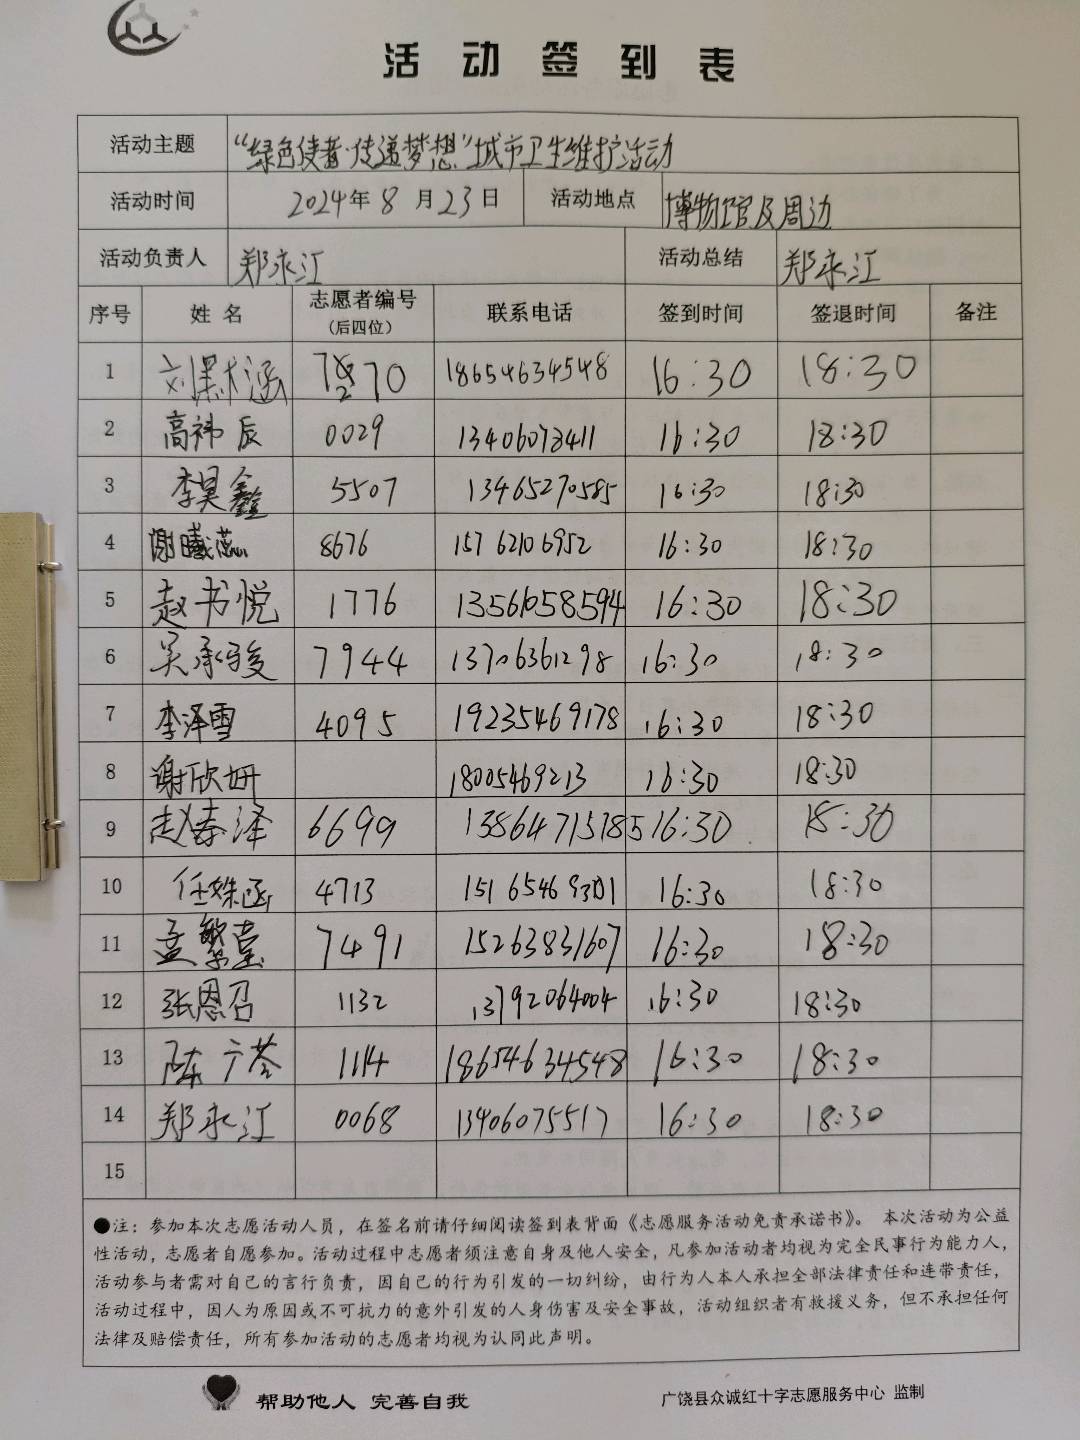 活动签到表
活动主题 “绿色使者·传递梦想”城市卫生维护活动
活动时间 2024年8月23日 活动地点 博物馆及周边
活动负责人 郑永江 活动总结 郑永江
序号 姓名 志愿者编号（后四位） 联系电话 签到时间 签退时间 备注
1 18654634548 16:30 18:30
2 高祎辰 0029 13406073411 16:30 18:30
3 李昊鑫 5507 13465270585 16:30 18:30
4 谢曦蕊 8676 15762106952 16:30 18:30
5 赵书悦 1776 13561058594 16:30 18:30
6 吴承骏 7944 13706361298 16:30 18:30
7 李泽雪 4095 19235469178 16:30 18:30
8 谢欣妍 18005469213 16:30 18:30
9 赵秦泽 6699 13864715785 16:30 18:30
10 任姝函 4713 16:30 18:30
11 孟繁莹 7491 15263831607 16:30 18:30
12 张恩召 1132 13792064004 16:30 18:30
13 陈广荟 1114 18654634548 16:30 18:30
14 郑永江 0068 13406075517 16:30 18:30
15
●注：参加本次志愿活动人员，在签名前请仔细阅读签到表背面《志愿服务活动免责承诺书》。 本次活动为公益
性活动，志愿者自愿参加。活动过程中志愿者须注意自身及他人安全，凡参加活动者均视为完全民事行为能力人，
活动参与者需对自己的言行负责，因自己的行为引发的一切纠纷，由行为人本人承担全部法律责任和连带责任，
活动过程中，因人为原因或不可抗力的意外引发的人身伤害及安全事故，活动组织者有救援义务，但不承担任何
法律及赔偿责任，所有参加活动的志愿者均视为认同此声明。
帮助他人 完善自我 广饶县众诚红十字志愿服务中心 监制